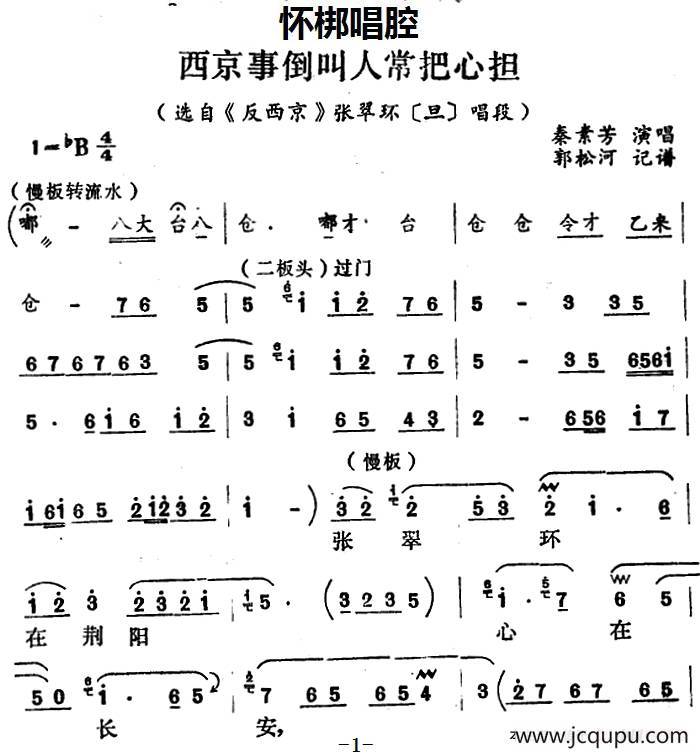 怀梆唱腔
西京事倒叫人常把心担
(选自《反西京》张翠环〔旦〕唱段)
1=♭B 4/4
秦素芳 演唱
郭松河 记谱
(慢板转流水)
(嘟 - 八大 台八 | 仓. 嘟才 台 | 仓 仓 令才 乙来 |
(二板头)过门
仓 - 76 5 | 5 6 i i 2 76 | 5 - 3 35 |
676763 5 | 5 6 i i 2 76 | 5 - 35 656i |
5· 6i6 i2 | 3 i 65 43 | 2 - 656 i7 |
(慢板)
i6i65 2i232 | i -) 32 i2 53 | 2 i· 6 |
张 翠 环
i2 3 232i | i5· (3235) | 6 i· 5 7 6 5 |
在 荆 阳 心 在
50 6 i· 65 | 2 7 65 65 4 | 3 (27 67 65 |
长 安,
-1-
www.jcqupu.com